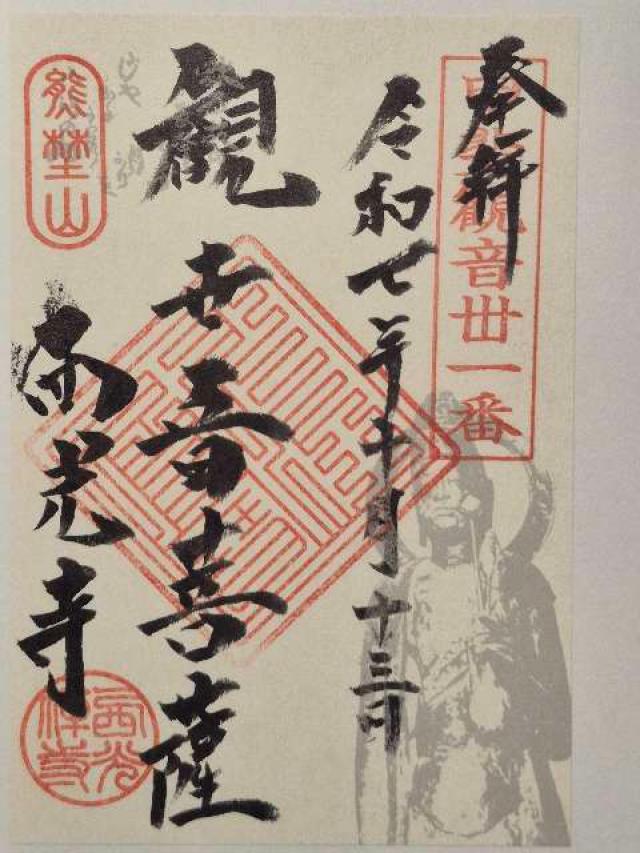 奉拝
観音丗一番
令和七年十月十三日
觀世音菩薩
熊埜山
西光寺
西光禅寺